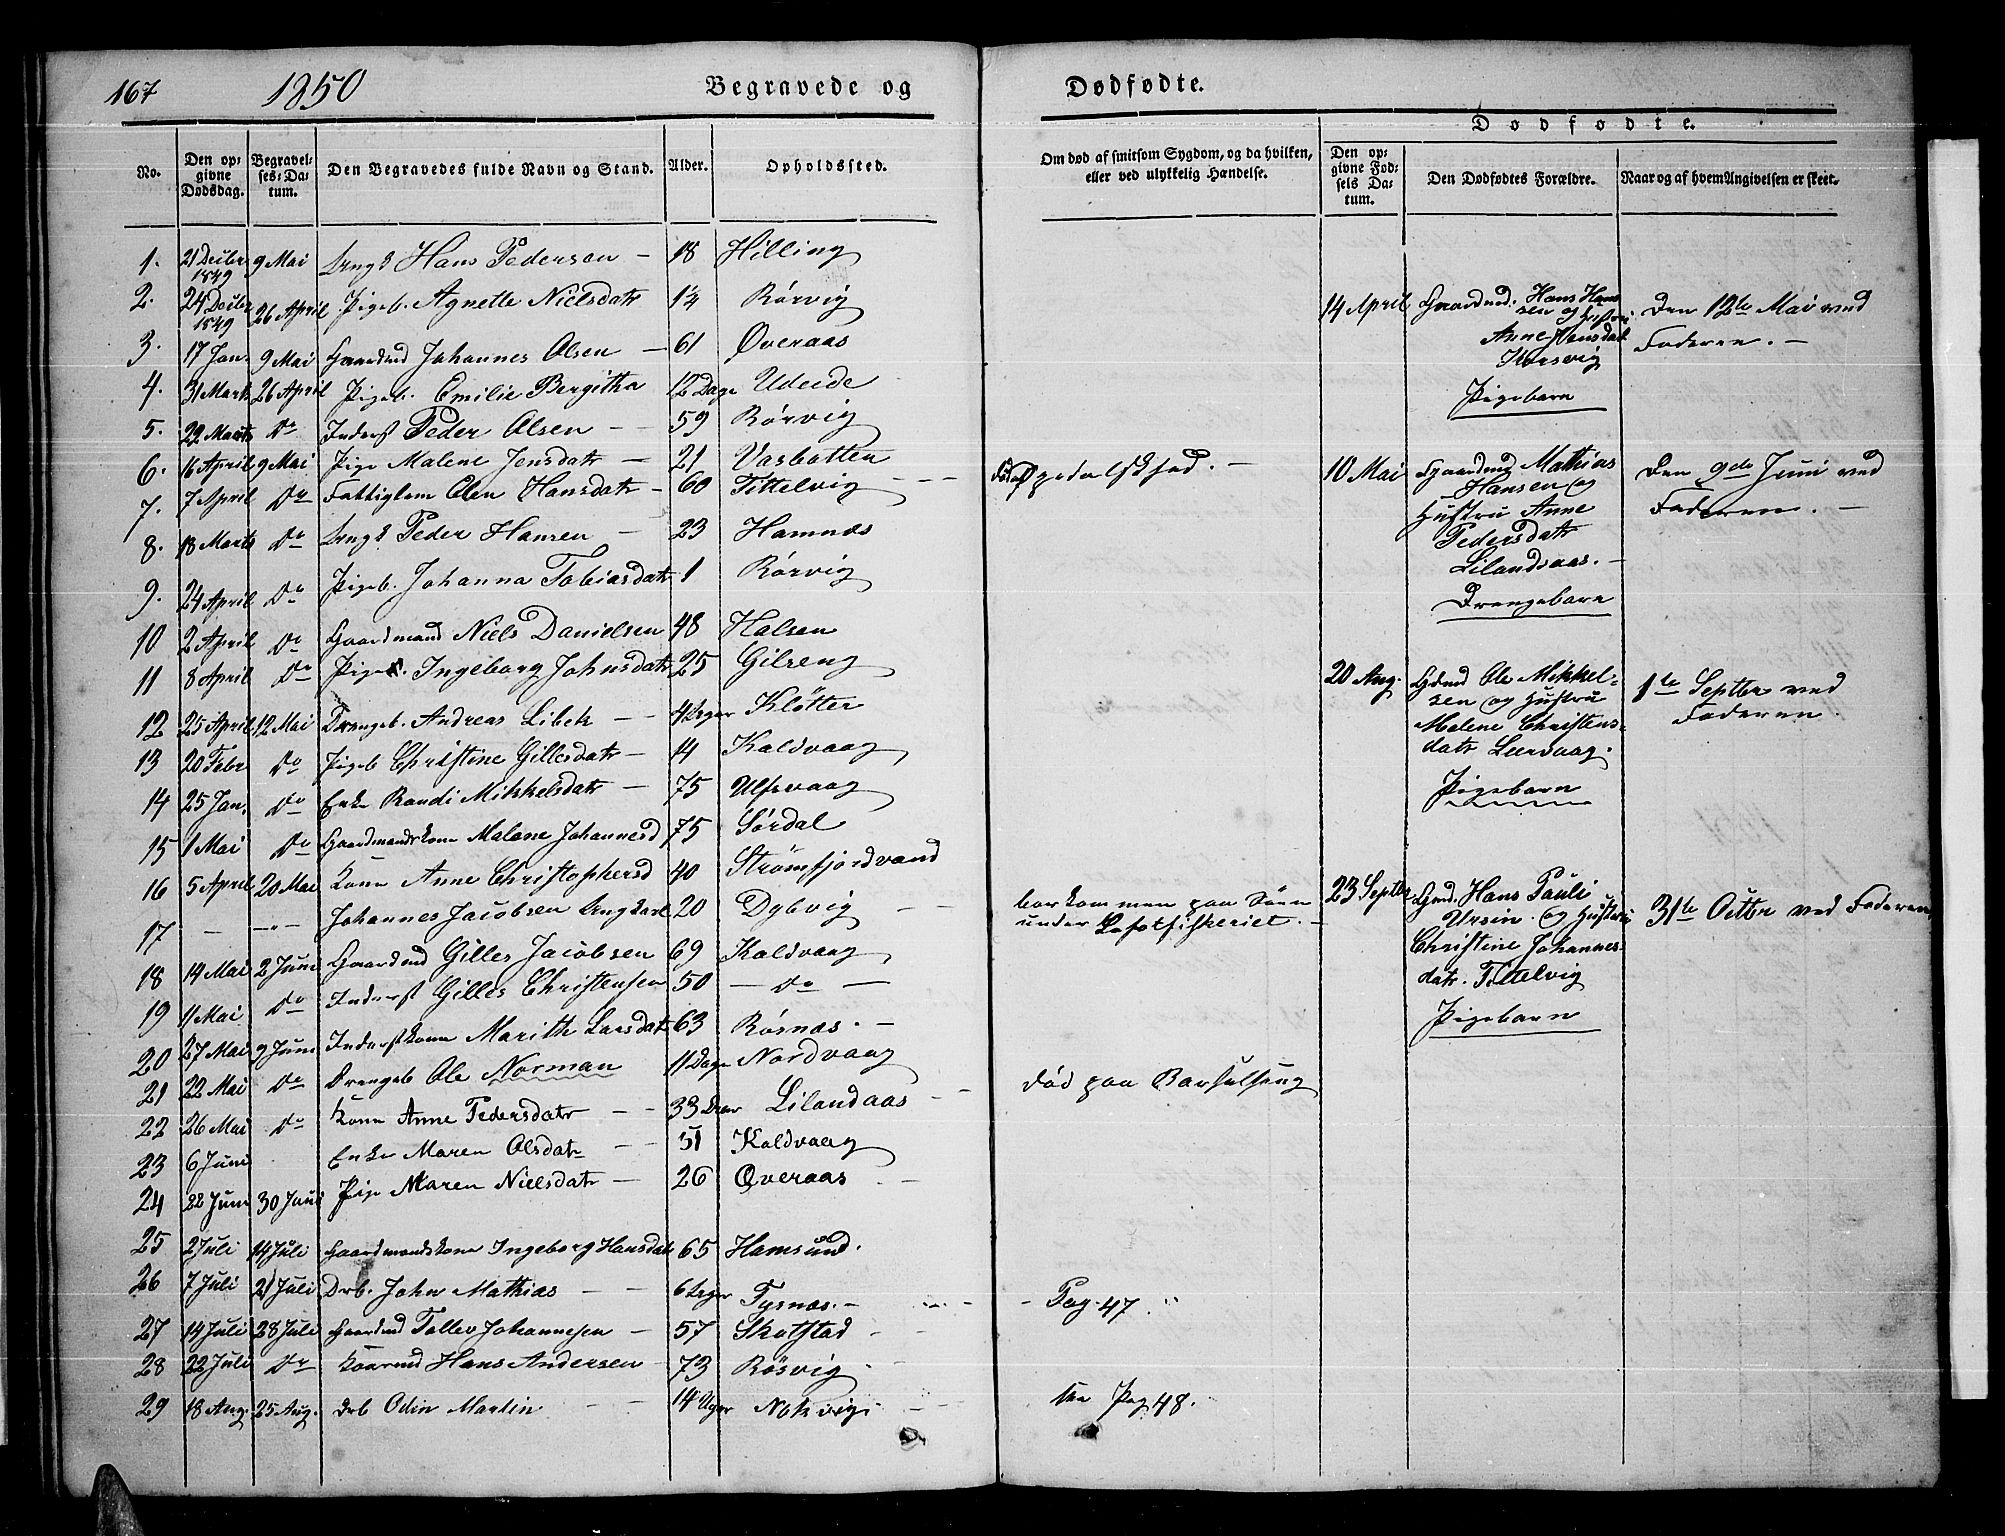 167 1850 Begravede og Dødfødte.
Dødfødte.
No. Den opgivne Dødsdag. Begravelses-Datum. Den Begravedes fulde Navn og Stand. Alder. Opholdssted. Om død af smitsom Sygdom, og da hvilken, eller ved ulykkelig Hændelse. Den opgivne Fødsels Datum. Den Dødfødtes Forældre. Naar og af hvem Angivelsen er skeet.
1. 21 Decbr 1849 9 Mai Hans Pedersen — 18 Hilling
2. 24 Decbr 1849 26 April Pigeb. Agnette Nielsdatr 1¼ Rørvig
3. 17 Jan. 9 Mai Gaardmd Johannes Olsen — 61 Øveraas
4. 31 Marts 26 April Pigeb. Emilie Bergitha 12 Dage Udeide
5. 22 Marts Do Inderst Peder Olsen — 59 Rørvig
6. 16 April 9 Mai Pige Malene Jensdatr — 21 Vasbotten
7. 7 April Do Fattiglem Olen Hansdatr — 60 Tittelvig — Spedalskhed. —
8. 18 Marts Do Peder Hansen — 23 Hamnæs
9. 24 April Do Pigeb. Johanna Tobiasdatr 1 Rørvig
10 2 April Do Gaardmand Niels Danielsen 48 Halsen
11 8 April Do Pige Ingeborg Johnsdatr 25 Gilseng
12 25 April 12 Mai Drengeb. Andreas Libek — 4 Uger Kløtter
13 20 Febr Do Pigeb Christine Gillesdatr — 14 Kaldvaag
14 25 Jan. Do Enke Randi Mikkelsdatr — 75 Ulfsvaag
15 1 Mai Do Gaardmandskone Malene Johannesd 75 Sørdal
16 5 April 20 Mai Kone Anne Christophersd 40 Strømfjordvand
17 — — Johannes Jacobsen Ungkarl 20 Dybvig — bortkommen paa Søen
under Lofotfiskeriet. —
18 14 Mai 2 Juni Gaardmd Gilles Jacobsen 69 Kaldvaag
19 11 Mai Do Inderst Gilles Christensen 50 — Do —
20 27 Mai 9 Juni Inderstkone Marith Larsdatr 63 Røsnæs. —
21 22 Mai Do Drengeb Ole Norman 11 Dage Nordvaag
22 26 Mai Do Kone Anne Pedersdatr — 33 Lilandaas — død paa Barselseng
23 6 Juni Enke Maren Olsdatr — 51 Kaldvaag
24 22 Juni 30 Juni Pige Maren Nielsdatr — 26 Øveraas —
25 2 Juli 14 Juli Gaardmandskone Ingeborg Hansdatr 65 Hamsund.
26 7 Juli 21 Juli Drb. John Mathias — 6 Uger Tysnæs. — Pag. 47.
27 14 Juli 28 Juli Gaardmd Tollev Johannesen — 57 Skotstad —
28 22 Juli Do Hans Andersen — 73 Røsvig
29 18 Aug. 25 Aug. drb Odin Martin — 14 Uger Nokvig — Pag 48.
14 April Gaardmd. Hans Hansen og Hustru Den 12te Mai ved
Anne Hansdatr Faderen. —
Korsvig
Pigebarn
10 Mai Gaardmd Mathias Den 9de Juni ved
Hansen og Faderen. —
Hustru Anne
Pedersdatr
Lilandsaas. —
Drengebarn
20 Aug. Ole Mikkel- 1te Septbr ved
sen og Hustru Faderen.
Malene Christens-
datr Leervaag.
Pigebarn
23 Septbr Hans Pauli 31te Octbr ved Faderen
Ursin. og Hustru
Christine Johannes-
datr. Tittelvig
Pigebarn